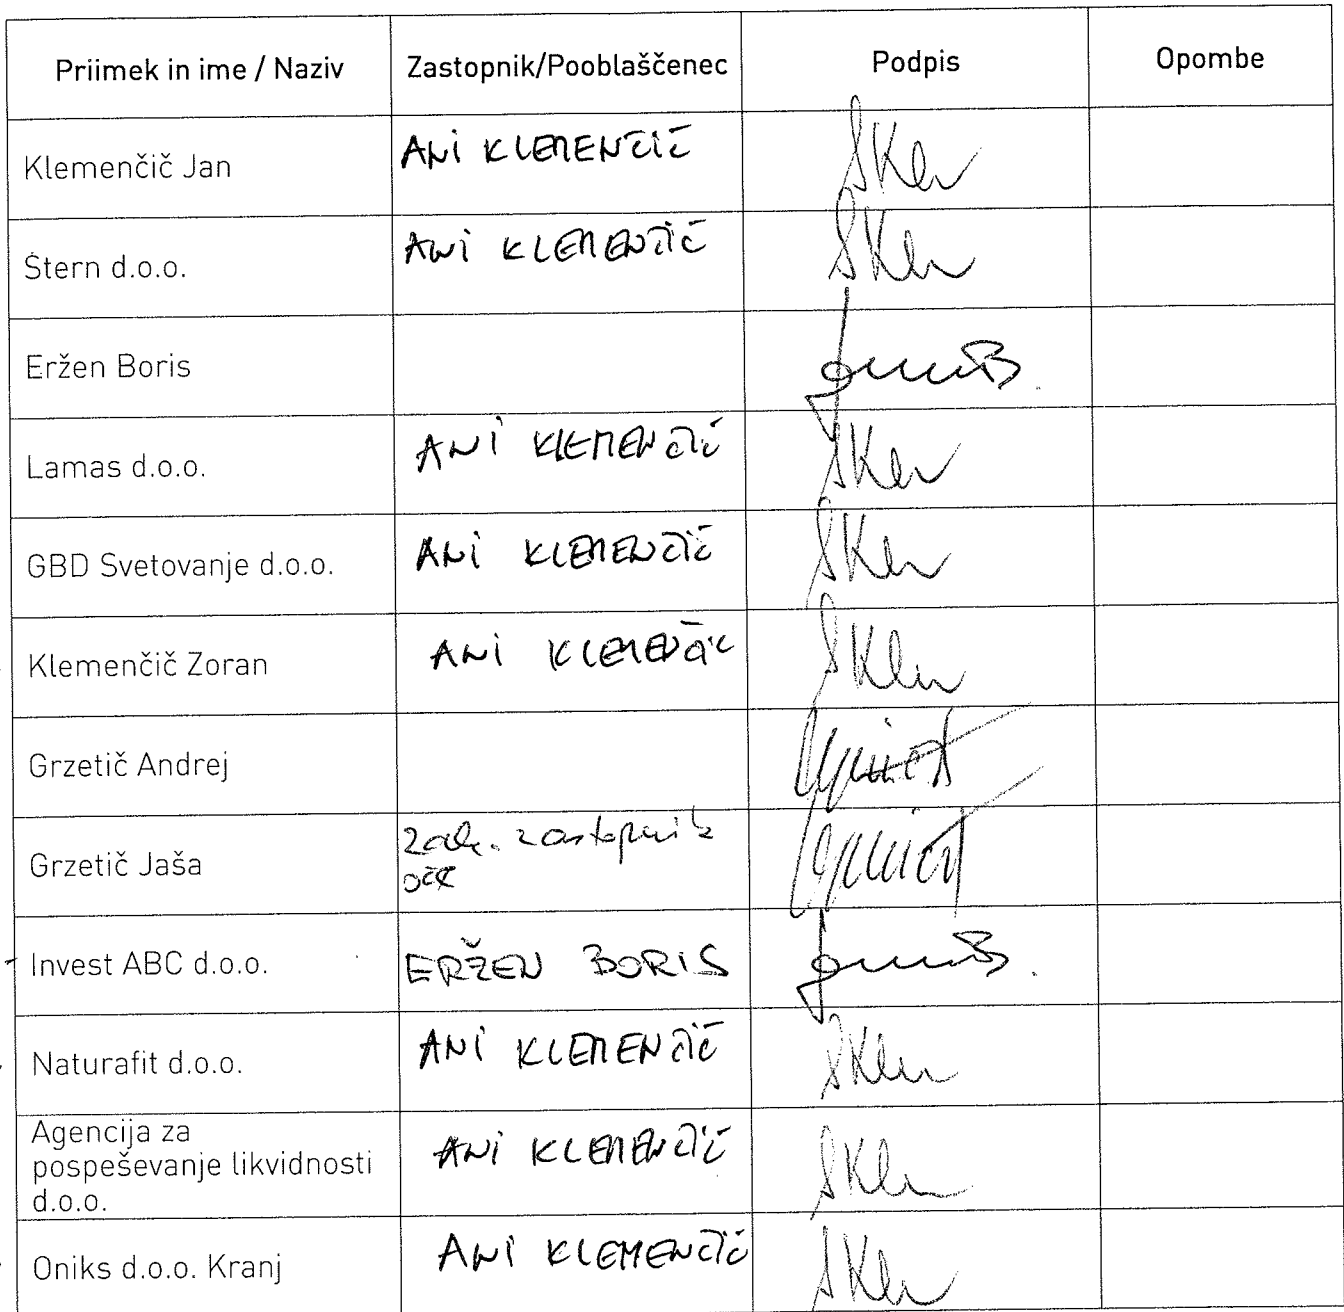 Priimek in ime / Naziv Zastopnik/Pooblaščenec Podpis Opombe
Klemenčič Jan ANI KLEMENČIČ
Štern d.o.o. ANI KLEMENČIČ
Eržen Boris
Lamas d.o.o. ANI KLEMENČIČ
GBD Svetovanje d.o.o. ANI KLEMENČIČ
Klemenčič Zoran ANI KLEMENČIČ
Grzetič Andrej
Grzetič Jaša zak. zastopnik
oče
Invest ABC d.o.o. ERŽEN BORIS
Naturafit d.o.o. ANI KLEMENČIČ
Agencija za
pospeševanje likvidnosti ANI KLEMENČIČ
d.o.o.
Oniks d.o.o. Kranj ANI KLEMENČIČ